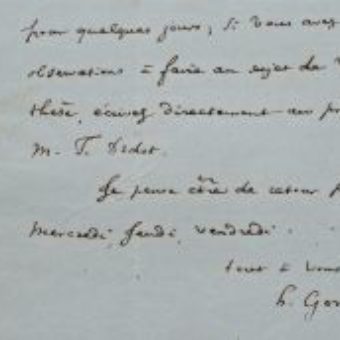 pour quelques jours, si vous avez
observations à faire au sujet de v
thèse, écrivez directement au pr
M. F. Didot.
Je pense être de retour p
Mercredi, Jeudi, vendredi.
tout à vous
h. Gor